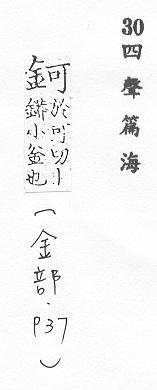 30 四聲篇海
鈳 於可切丨
小釜也
(金部.937)